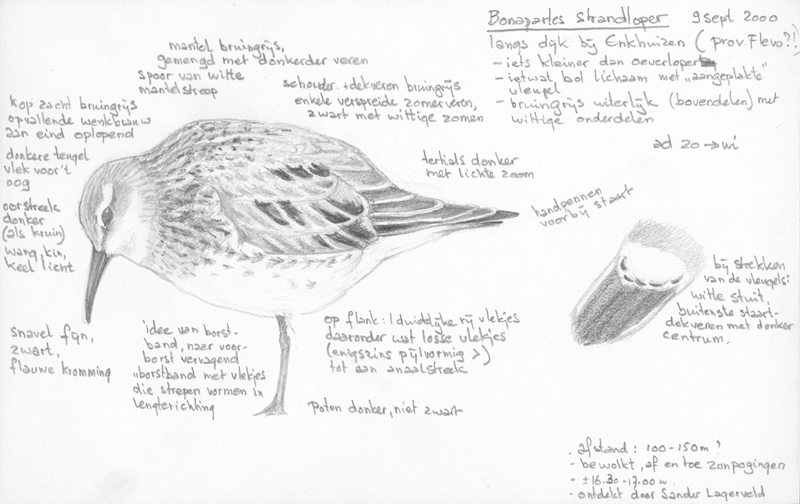 Bonapartes Strandloper 9 sept 2000
langs dijk bij Enkhuizen (prov. Flevo?!
- iets kleiner dan oeverloper
- ietwat bol lichaam met "aangeplakte"
vleugel
- bruingrijs uiterlijk (bovendelen) met
wittige onderdelen
ad zo → wi
mantel bruingrijs,
gemengd met donkerder veren
spoor van witte
mantelstreep
schouder- + dekveren bruingrijs
enkele verspreide zomerveren,
zwart met wittige zomen
kop zacht bruingrijs
opvallende wenkbrauw
aan eind oplopend
donkere teugel
vlek voor 't
oog
oorstreek
donker
(als kruin)
wang, kin,
keel licht
tertials donker
met lichte zoom
handpennen
voorbij staart
bij strekken
van de vleugels:
witte stuit,
buitenste staart-
dekveren met donker
centrum.
snavel fijn,
zwart,
flauwe kromming
idee van borst-
band, naar voor-
borst vervagend
"borstband met vlekjes
die strepen vormen in
lengterichting
op flank: 1 duidelijke rij vlekjes
daaronder wat losse vlekjes
(enigszins pijlvormig >)
tot aan anaalstreek
Poten donker, niet zwart
. afstand: 100-150m ?
- bewolkt, af en toe zonpogingen
- ±16.30-17.00 u.
- ontdekt door Sander Lagerveld